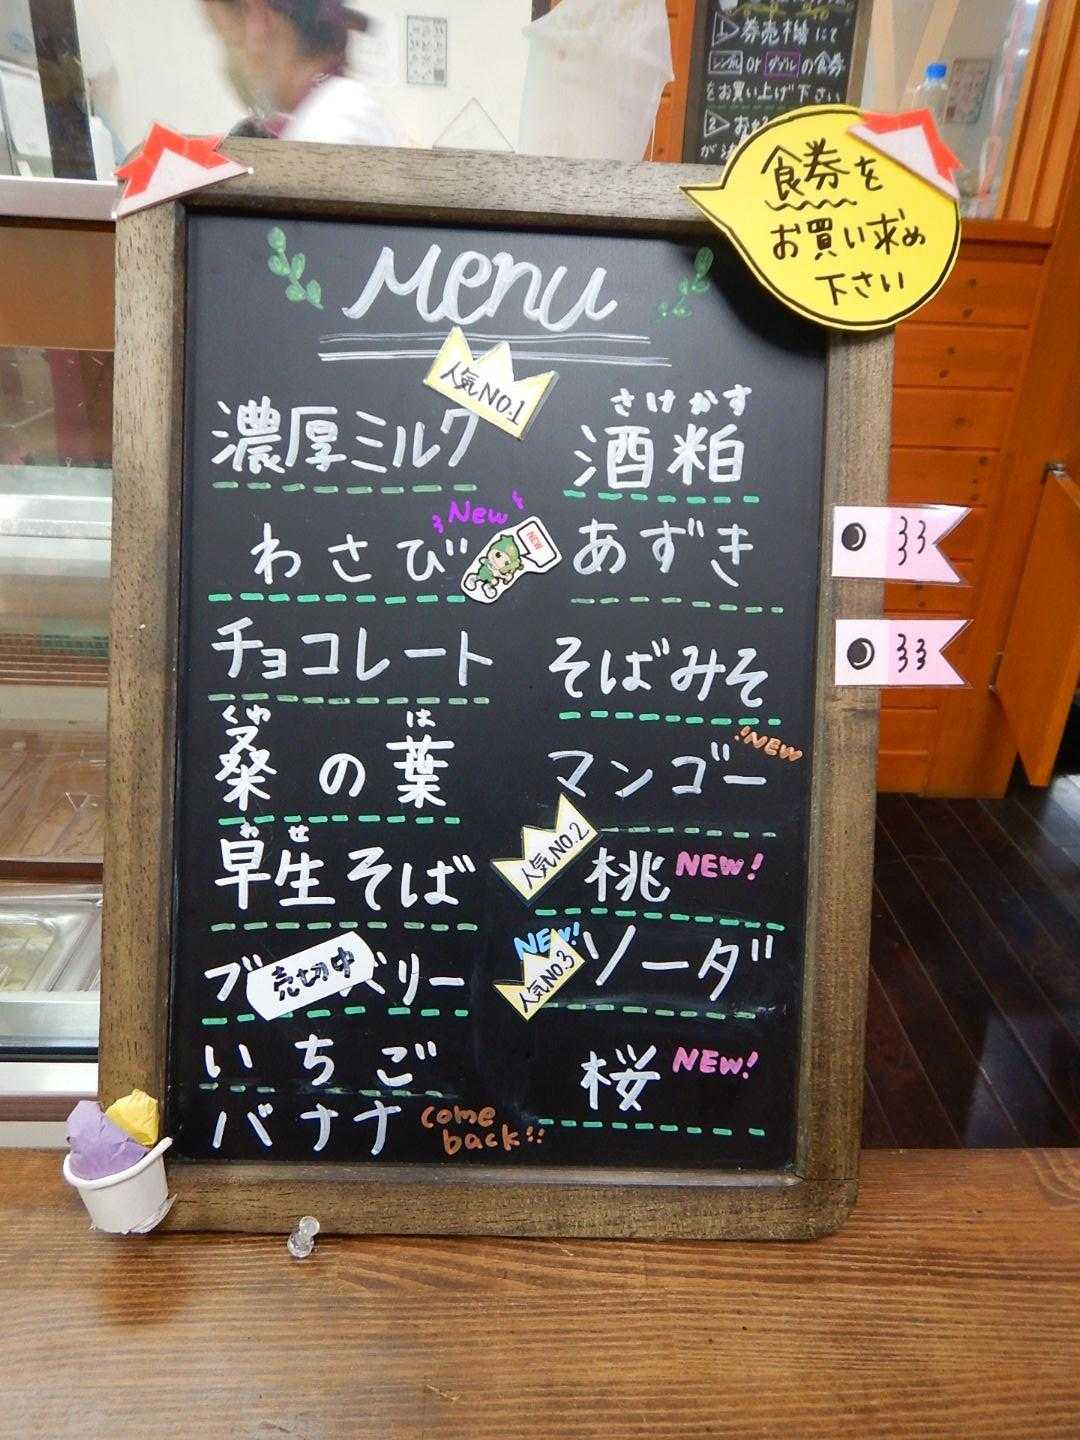 1 券売機にて
シングル or ダブル の食券
をお買い上げ下さい
2
食券を
お買い求め
下さい
Menu
人気NO.1
濃厚ミルク
さけかす
酒粕
New
NEW
わさび
あずき
チョコレート
そばみそ
くわ は
桑の葉
!NEW
マンゴー
わせ
早生そば
人気NO.2
桃 NEW!
ブ 売切中 ベリー
NEW!
人気NO.3
ソーダ
いちご
桜 NEW!
バナナ come
back!!